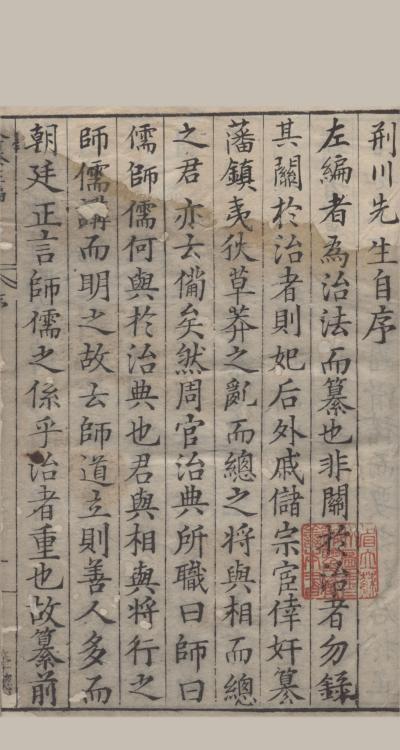 荆川先生自序
左編者為治法而纂也非關於治者勿錄
其關於治者則妃后外戚儲宗宦倖奸篡
藩鎮夷狄草莽之亂而總之將與相而總
之君亦云備矣然周官治典所職曰師曰
儒師儒何與於治典也君與相與將行之
師儒講而明之故云師道立則善人多而
朝廷正言師儒之係乎治者重也故纂前